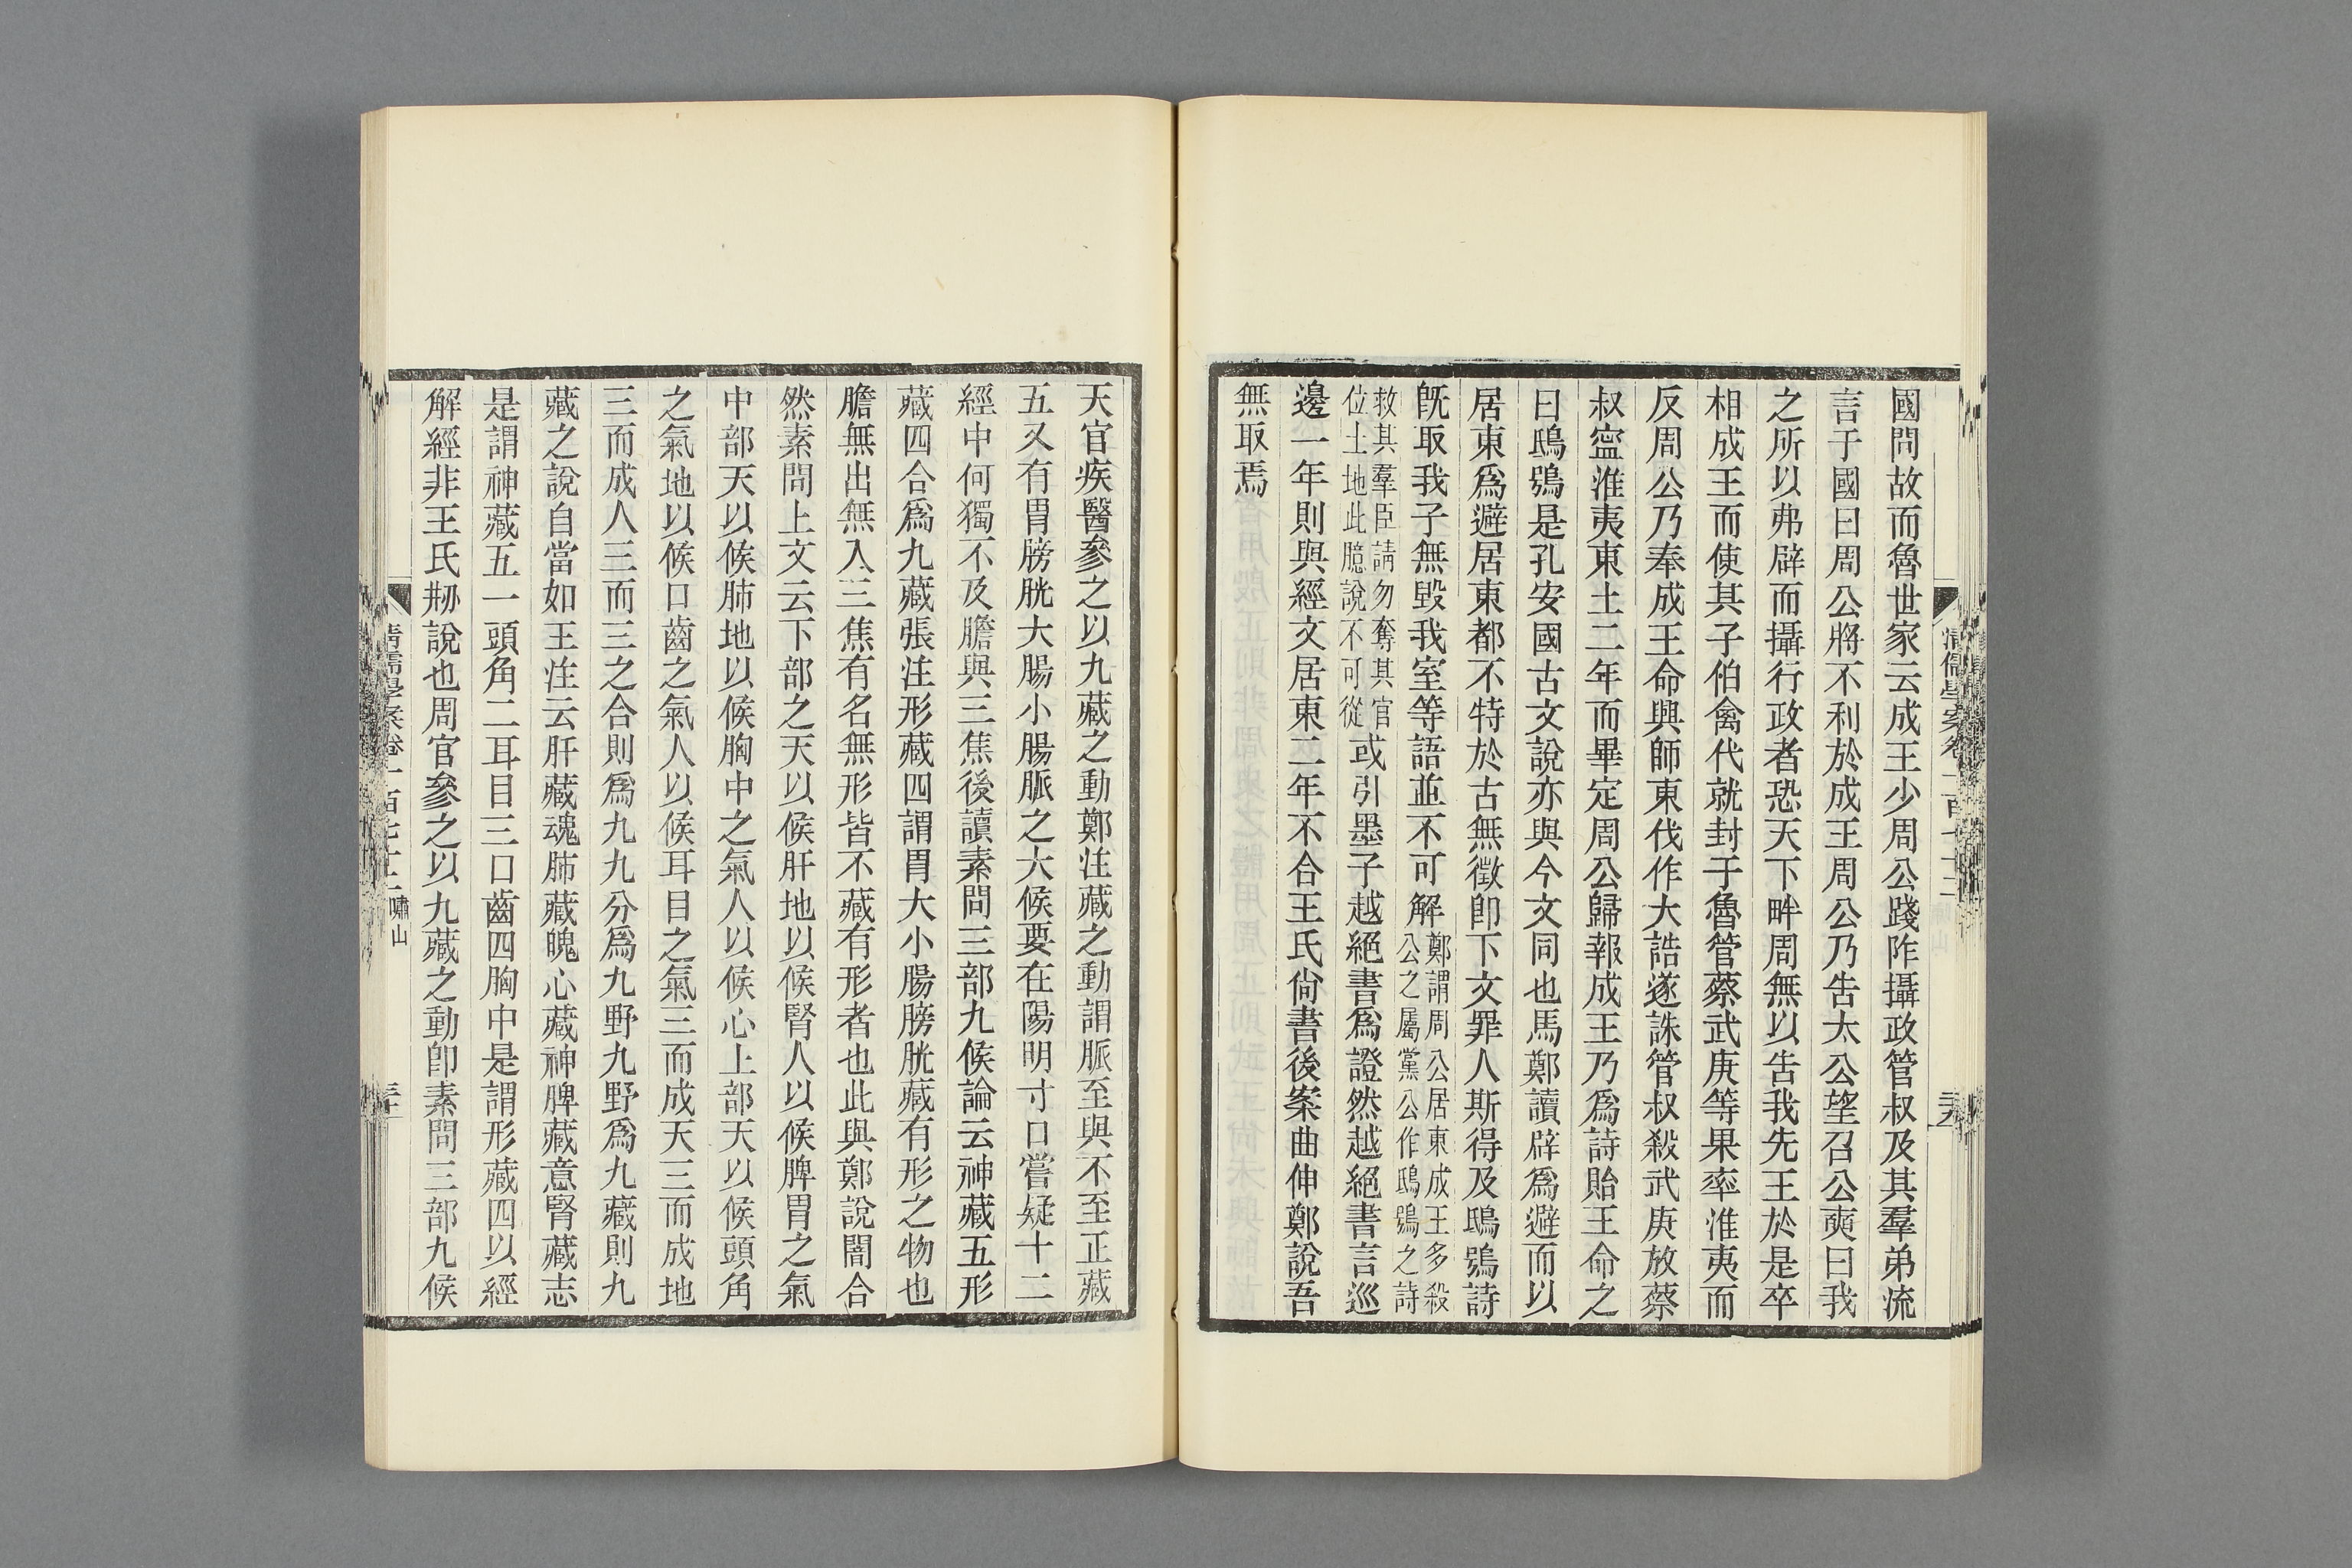 國問故而魯世家云成王少周公踐阼攝政管叔及其羣弟流
言于國曰周公將不利於成王周公乃告太公望召公奭曰我
之所以弗辟而攝行政者恐天下畔周無以告我先王於是卒
相成王而使其子伯禽代就封于魯管蔡武庚等果率淮夷而
反周公乃奉成王命興師東伐作大誥遂誅管叔殺武庚放蔡
叔寍淮夷東土二年而畢定周公歸報成王乃爲詩貽王命之
曰鴟鴞是孔安國古文說亦與今文同也馬鄭讀辟爲避而以
居東爲避居東都不特於古無徵卽下文罪人斯得及鴟鴞詩
旣取我子無毀我室等語並不可解鄭謂周公居東成王多殺公之屬黨公作鴟鴞之詩
救其羣臣請勿奪其官位土地此臆說不可從或引墨子越絕書爲證然越絕書言巡
邊一年則與經文居東二年不合王氏尙書後案曲伸鄭說吾
無取焉
天官疾醫參之以九藏之動鄭注藏之動謂脈至與不至正藏
五又有胃膀胱大腸小腸脈之大候要在陽明寸口嘗疑十二
經中何獨不及膽與三焦後讀素問三部九候論云神藏五形
藏四合爲九藏張注形藏四謂胃大小腸膀胱藏有形之物也
膽無出無入三焦有名無形皆不藏有形者也此與鄭說闇合
然素問上文云下部之天以候肝地以候腎人以候脾胃之氣
中部天以候肺地以候胸中之氣人以候心上部天以候頭角
之氣地以候口齒之氣人以候耳目之氣三而成天三而成地
三而成人三而三之合則爲九九分爲九野九野爲九藏則九
藏之說自當如王注云肝藏魂肺藏魄心藏神脾藏意腎藏志
是謂神藏五一頭角二耳目三口齒四胸中是謂形藏四以經
解經非王氏刱說也周官參之以九藏之動卽素問三部九候
清儒學案卷一百七十二 嘯山